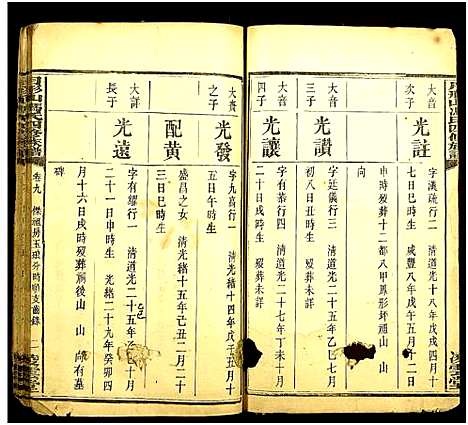 大音
次子
光註
字漢疏行二 清道光十八年戊戌四月
七日巳時生 咸豐八年戊午八月十二
申時歿葬十二都八甲鳳形坪禰山 山
向
大音
三子
光讚
字廷儀行三 清道光二十五年乙巳七月
初八日丑時生 歿葬未詳
大音
四子
光讓
字有恭行四 清道光二十七年丁未十月
二十日戌時生 歿葬未詳
大賚
之子
光發
字九萬行一 清光緒十四年戊子五月十
五日午時生
配黄
盛昌之女 清光緒十五年己丑二月二十
三日巳時生
大詳
長子
光遠
字有耀行一 清道光二十五年乙巳十月
二十一日申時生 光緒二十九年癸卯四
月十六日戌時歿葬禰後山 山 向有墓
碑
卷九
傑祖房玉琅分時順支齒錄
一